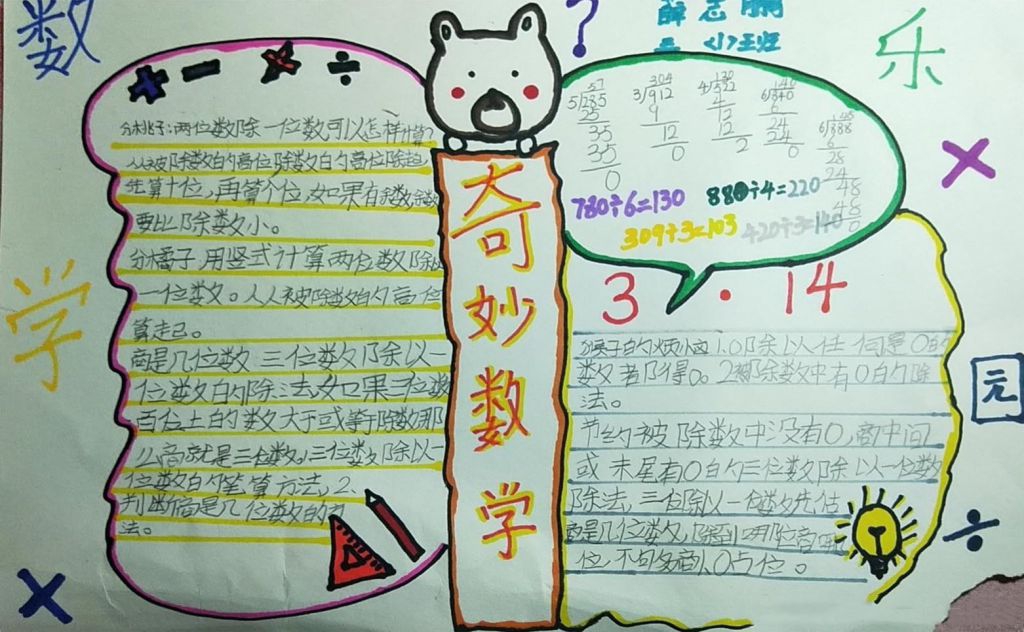 数
学
乐
元
?
薛志鹏
三〈1〉班
+ - × ÷
分桃子:两位数除一位数可以怎样计算?
从被除数的高位除数的高位除起
先算十位,再算个位,如果有余数,余数
要比除数小。
分橘子,用竖式计算两位数除以
一位数。从人被除数的高位
算走己。
商是几位数 三位数除以一
位数的除法,如果三位数
百位上的数大于或等于除数那
么商就是三位数。三位数除以一
位数的笔算方法,2、
判断商是几位数的方
法。
奇妙数学
57
5√285
25
35
35
0
304
3√912
9
12
0
130
4√522
4
12
12
2
140
6√840
6
24
24
0
6√888
6
28
24
48
48
0
780÷6=130
880÷4=220
309÷3=103
420÷3=140
3.14
猴子的烦恼 1.0除以任何是0的
数都得0。2被除数中有0的除
法。
节约被除数中没有0,商中间
或末尾有0的三位数除以一位数
除法,三位除以一位数先估
商是几位数,除到哪位商哪
位,不句多商1.0占位。
×
÷
×